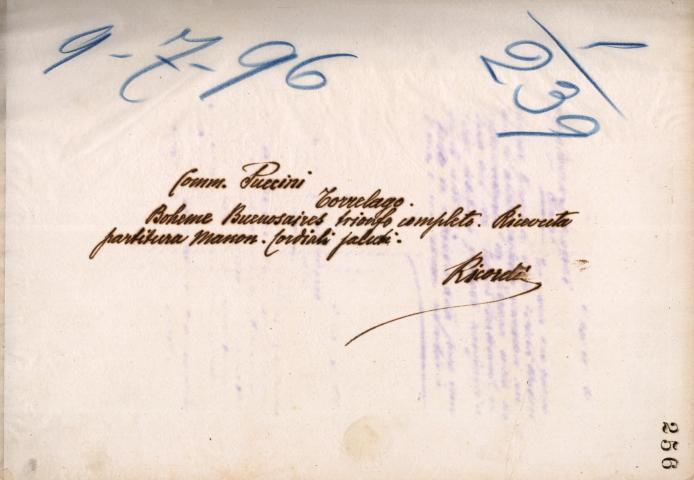 9-7-96
1/239
Comm. Puccini
Torrelago.
Boheme Buenosaires trionfo completo. Ricevuta
partitura Manon. Cordiali saluti.
Ricordi
256